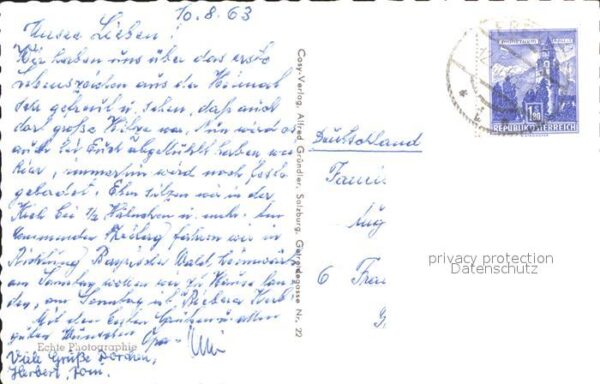 10.8.63
Unsere Lieben!
Wir haben uns über das erste
Lebenszeichen aus der Heimat
sehr gefreut u. sehen, daß auch
dort große Hitze war. Nun wird es
auch bei Euch abgekühlt haben, wie
hier, immerhin wird noch feste
gebadet. Eben sitzen wir in der
bei 1/2 u.
kommenden Freitag fahren wir in
Richtung Bayrischer Wald heimwärts
am Samstag wollen wir zu Hause lan-
den, am Sonntag ist
Mit den besten Grüßen u. allen
guten Wünschen Opa
Echte Photographie
Viele Grüße
Herbert, Tom.
Cosy-Verlag, Alfred Gründler, Salzburg, Getreidegasse Nr. 22
1.80
REPUBLIK ÖSTERREICH
Deutschland
Fami
Aug
6 Frau
privacy protection
Datenschutz